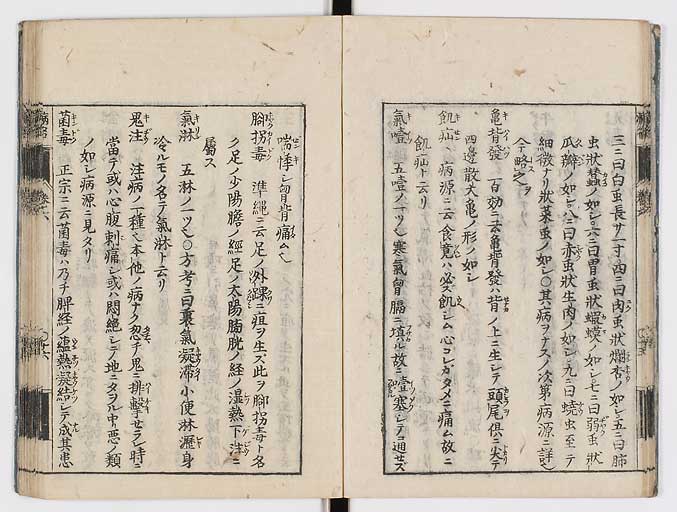 三ニ曰白虫長サ一寸四ニ曰肉虫状爛杏ノ如シ五ニ曰肺
虫状蚕ノ如シ六ニ曰胃虫状蝦蟆ノ如シ七ニ曰弱虫状
瓜瓣ノ如シ八ニ曰赤虫状生肉ノ如シ九ニ曰蟯虫至テ
細微ナリ状菜虫ノ如シ○其病ヲナスノ次第病源ニ詳ニ
今略之
亀背發 一百効ニ云亀背發ハ背ノ上ニ生シテ頭尾倶ニ尖テ
四邊散大亀ノ形ノ如シ
飢疝 病源ニ云食寛ハ必ズ飢シム心コレガタメニ痛ム故ニ
飢疝ト云リ
氣噎 五噎ノ一ツ也寒氣胸膈ニ塡ル故ニ噎塞シテ通セズ
喘悸シ胸背痛ム也
脚拐毒 準縄ニ云足ノ外踝ニ疽ヲ生ズ此ヲ脚拐毒ト名
ク足ノ少陽膽ノ經足ノ太陽膀胱ノ経ノ湿熱下注ニ
屬ス
氣淋 五淋ノ一ツ也○方考ニ曰裏氣凝滞小便淋瀝身
冷ルモノ名テ氣淋ト云リ
鬼注 注病ノ一種也本他ノ病ナク忽チ鬼ニ排撃セラレ時ニ
當テ或ハ心腹刺痛シ或ハ悶絶シテ地ニタヲル中悪ノ類
ノ如シ病源ニ見タリ
菌毒 正宗ニ云菌毒ハ乃チ脾経ノ蘊熱凝結シテ成其患